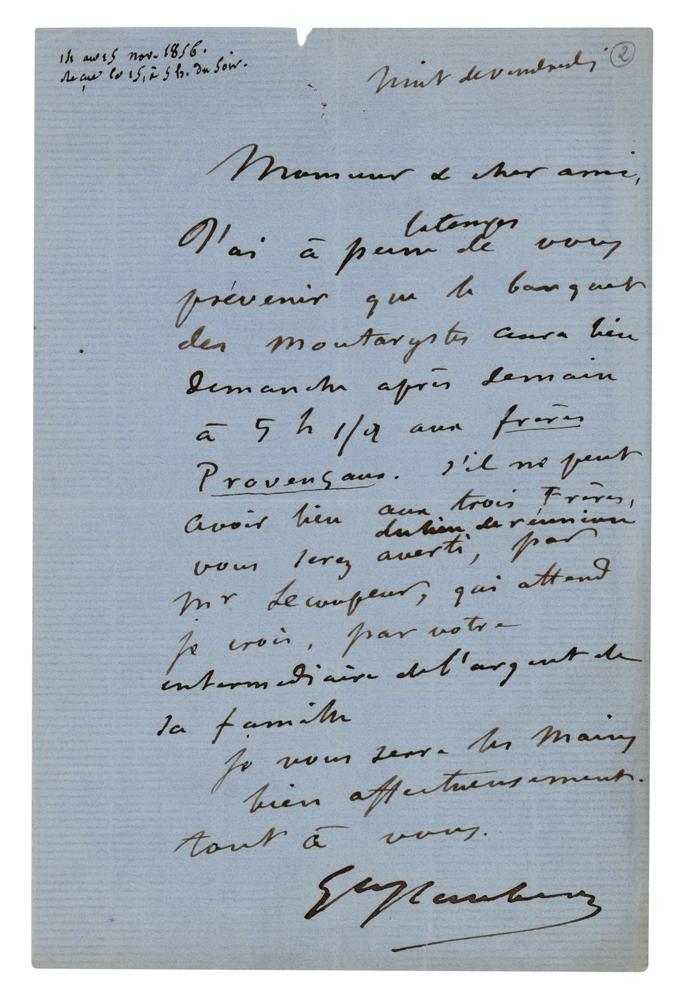 15 nov. 1856.
Reçue le 15, à 5 h. du soir.
nuit de vendredi
2
Monsieur & cher ami,
J'ai à peine le temps de vous
prévenir que le banquet
des moutarystes aura lieu
dimanche après demain
à 5 h 1/2 aux frères
Provençaux. s'il ne peut
avoir lieu aux trois Frères,
vous serez averti, du lieu de réunion par
Mr Lecoupeur, qui attend
je crois, par votre
intermédiaire de l'argent de
sa famille
je vous serre les mains
bien affectueusement.
tout à vous.
Gve Flaubert